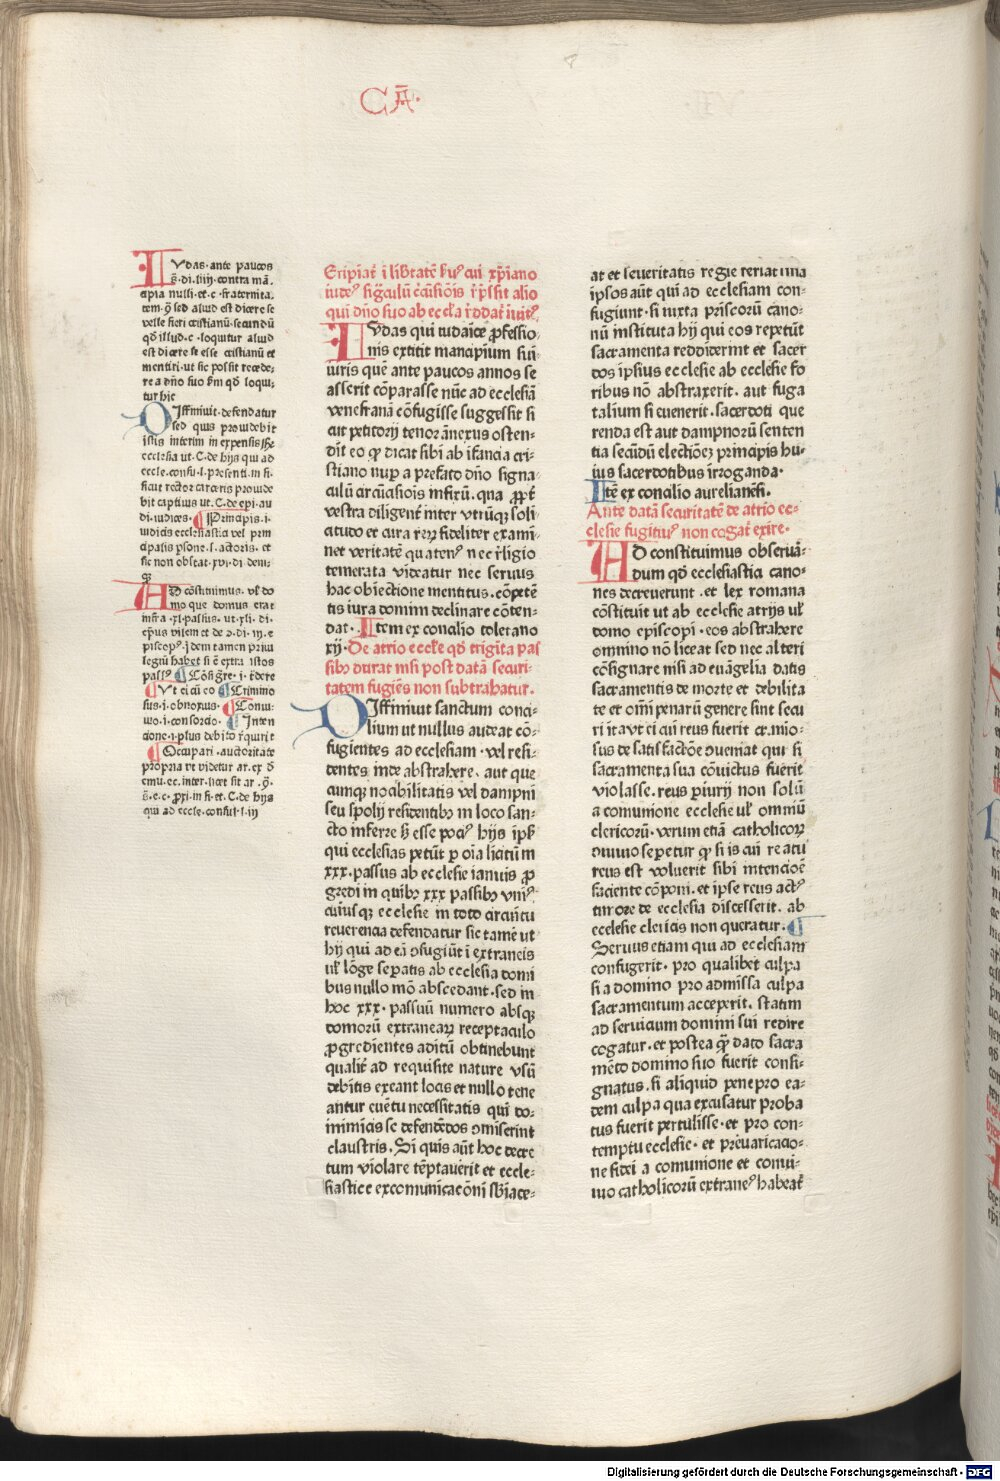 CA̅.
IVdas·ante paucos
s̄·di·liiij·contra mā·
cipia nulli·et·c·fraternita
tem·q̄ sed aliud est dicere se
velle fieri cristianū·secundū
qd̄ illud·c·loquitur aliud
est dicere se esse cristianū et
mentiri·ut sic possit recede·
re a dn̄o suo
tur hic
DIffiniuit·defendatur
sed quis prouidebit
istis interim in expensis
ecclesia ut·C·de hijs qui ad
eccle·confu·l·presenti·in fi·
sicut rector carceris prouide
bit captiuis ut·C·de epi·au
di·iudices·¶Principis·i·
iudicis ecclesiastici vel prin
cipalis psone·s·actoris·et
sic non obstat·xvi·di·deni·
q̄
AD cōstituimus·vl̄ do
mo que domus erat
infra·xl·passus·ut·xli·di·
ep̄us vilem et de ɔ·di·iij·e
piscopꝰ·jdem tamen priui
legiū habet si ē extra istos
passꝰ ¶Cōsig̅re·i·tdere
¶Vt ei cū eo ¶Crimino
sus·i·obnoxius·¶Conui·
uio·i·consorcio·¶Inten
cione·i·plus debito rq̄urit
¶Occupari·auctoritate
propria vt videtur ar·ex d̄
emu·ec·inter·licet sit ar·q̄·
s̄·e·c·p̄xi·in fi·et·C·de hijs
qui ad eccle·confu·l·iij
Eripiat̄ ī lib̄tatē cui xp̄iano
iudeꝰ sig̅culū ccūsiōis īp̄ssit alio
qui dn̄o suo ab eccl̄a r̄ddat̄
IVdas qui iudaice p̄fessio·
nis extitit mancipium sui
iuris quē ante paucos annos se
asserit cōparasse nūc ad ecclesiā
venefranā cōfugisse suggessit si
cut petitorij tenor ānexus osten·
dit eo ꝙ dicat sibi ab ifancia cri·
stiano nup a prefato dn̄o signa·
culū circūcisiōis infixū·qua ꝓpt̄
vestra diligent̄ inter vtrūqꝫ soli
citudo et cura reꝝ fideliter exami·
net veritatē quatenꝰ nec r̄ligio
temerata videatur nec seruus
hac obiectione mentitus·cōpetē
tis iura domini declinare cōten·
dat·Item ex concilio toletano
xij·De atrio eccl̄e qd̄ triginta pas
sibꝫ durat nisi post datā securi·
tatem fugiēs non subtrahatur.
DIffiniuit sanctum conci·
lium ut nullus audeat cō·
fugientes ad ecclesiam·vel resi·
dentes inde abstrahere·aut que
cumqꝫ nocibilitatis vel dampni
seu spolij residentibꝫ in loco san·
cto inferre sꝫ esse pociꝰ hijs ip̄s
qui ecclesias petūt p oīa licitū in
xxx·passus ab ecclesie ianuis ꝓ
gredi in quibꝫ xxx passibꝫ vniꝰ·
cuiusqꝫ ecclesie in toto circuitu
reuerencia defendatur sic tamē ut
hij qui ad eā ɔfugiūt ī extraneis
ul̄ lōge sepatis ab ecclesia domi
bus nullo mō abscedant·sed in
hoc xxx·passuū numero absqꝫ
domorū extraneaꝝ receptaculo
ꝓgredientes aditū obtinebunt
qualit̄ ad requisite nature vsū
debitis exeant locis et nullo tene
antur euētu necessitatis qui do·
minicis se defendēdos ɔmiserint
claustris·Si quis aūt hoc decre
tum violare tēptauerit et eccle·
siastice excomunicacōni sb̄iace·
at et seueritatis regie feriat ūna
ipsos aūt qui ad ecclesiam con·
fugiunt·si iuxta priscorū cano·
nū instituta hij qui eos repetūt
sacramenta reddiderint et sacer
dos ipsius ecclesie ab ecclesie fo
ribus nō abstraxerit·aut fuga
talium si euenerit·sacerdoti que
renda est aut dampnorū senten
tia secūdū electiōeꝫ principis hu·
ius sacerdotibus īrroganda·
Itē ex concilio aurelianēsi·
Ante datā securitatē de atrio ec·
clesie fugitiuꝰ non cogat̄ exire·
AD constituimus obseruā·
dum qd̄ ecclesiastici cano·
nes decreuerunt·et lex romana
cōstituit ut ab ecclesie atrijs ul̄
domo episcopi·eos abstrahere
omnino nō liceat sed nec alteri
cōsignare nisi ad euāgelia datis
sacramentis de morte et debilita
te et omī penarū genere sint secu
ri ita vt ei cui reus fuerit cr̄mio·
sus de satisfactōne ɔueniat qui si
sacramenta sua cōuictus fuerit
violasse·reus piurij non solū
a comunione ecclesie ul̄ omniū
clericorū·verum etiā catholicoꝝ
ɔuiuio sepetur ꝙ si is cui reatu
reus est voluerit sibi intencioē
faciente cōponi·et ipse reus actꝰ
timore de ecclesia discesserit·ab
ecclesie clericis non queratur·¶
Seruus etiam qui ad ecclesiam
confugerit·pro qualibet culpa
si a domino pro admissa culpa
sacramentum acceperit·statim
ad seruicium domini sui redire
cogatur·et postea ꝙ̄ dato sacra
mēto domino suo fuerit consi·
gnatus·si aliquid pene pro ea·
dem culpa qua excusatur proba
tus fuerit pertulisse·et pro con·
temptu ecclesie·et preuaricacio·
ne fidei a comunione et conui·
uio catholicorū extraneꝰ habeat̄
Digitalisierung gefördert durch die Deutsche Forschungsgemeinschaft - DFG